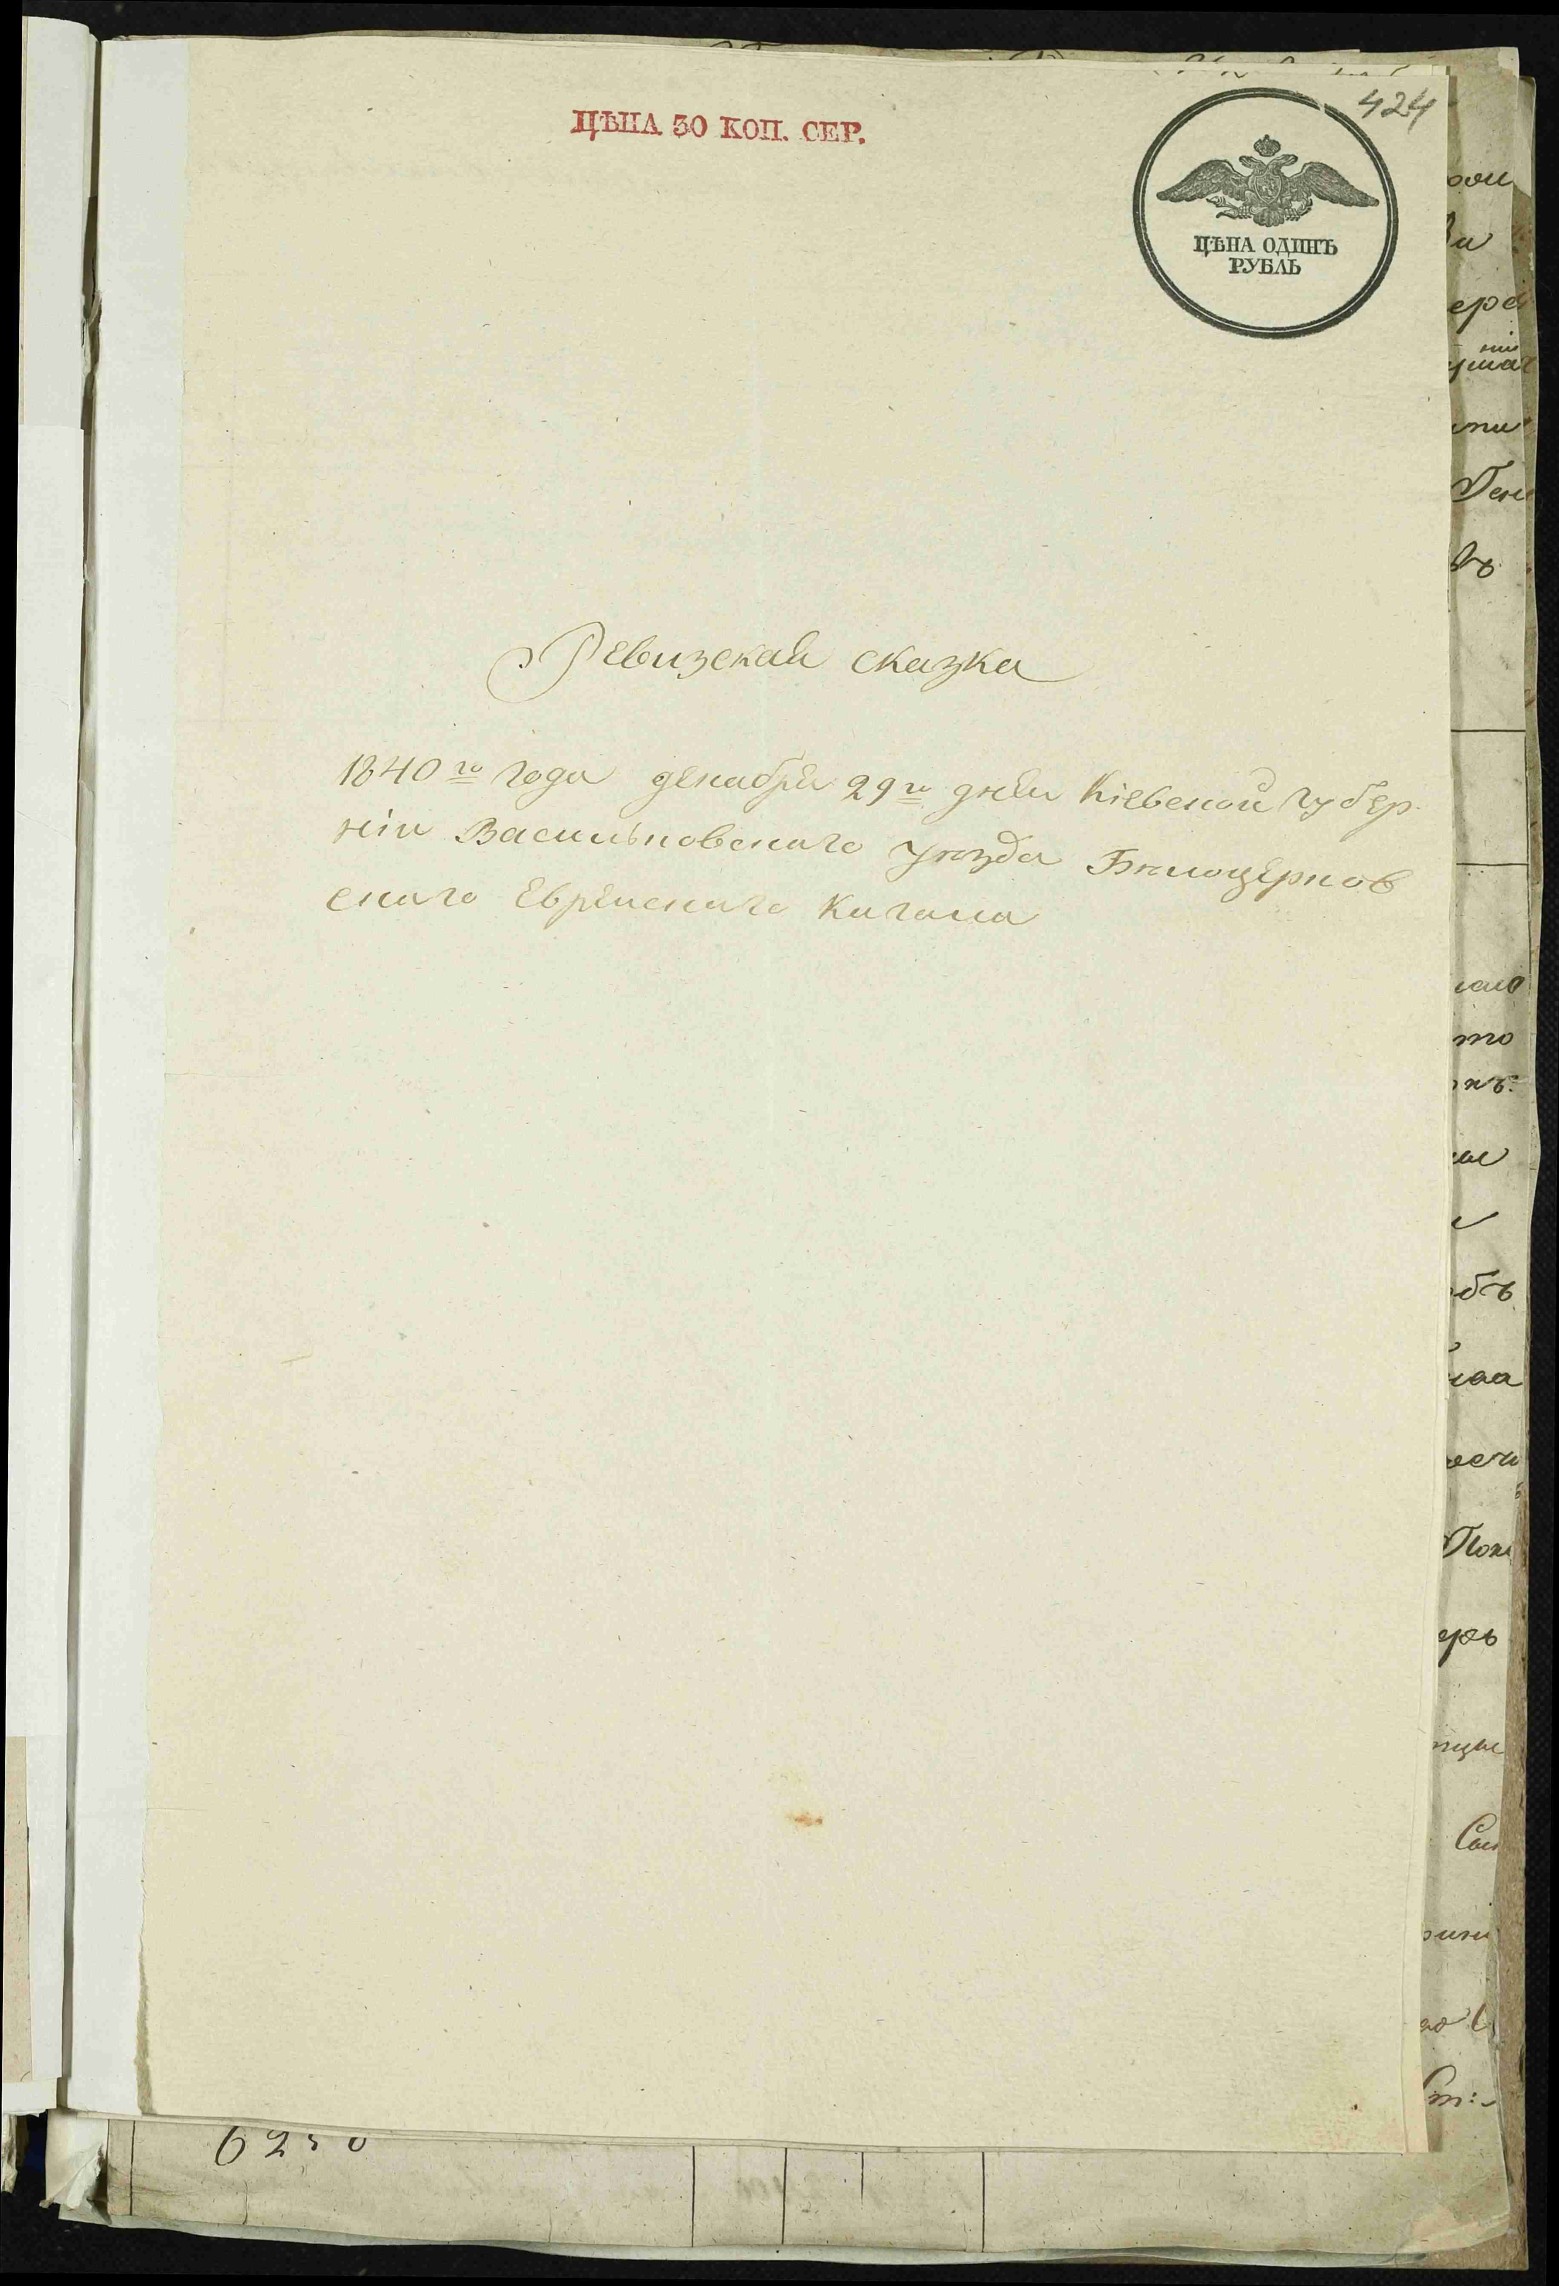 424
ЦѢНА 30 КОП. СЕР.
ЦѢНА ОДИНЪ
РУБЛЬ
Ревизская сказка
1840го года декабря 29го дня Кіевской губер
ніи Васильковскаго уѣзда Бѣлоцерков
скаго Еврейскаго Кагала